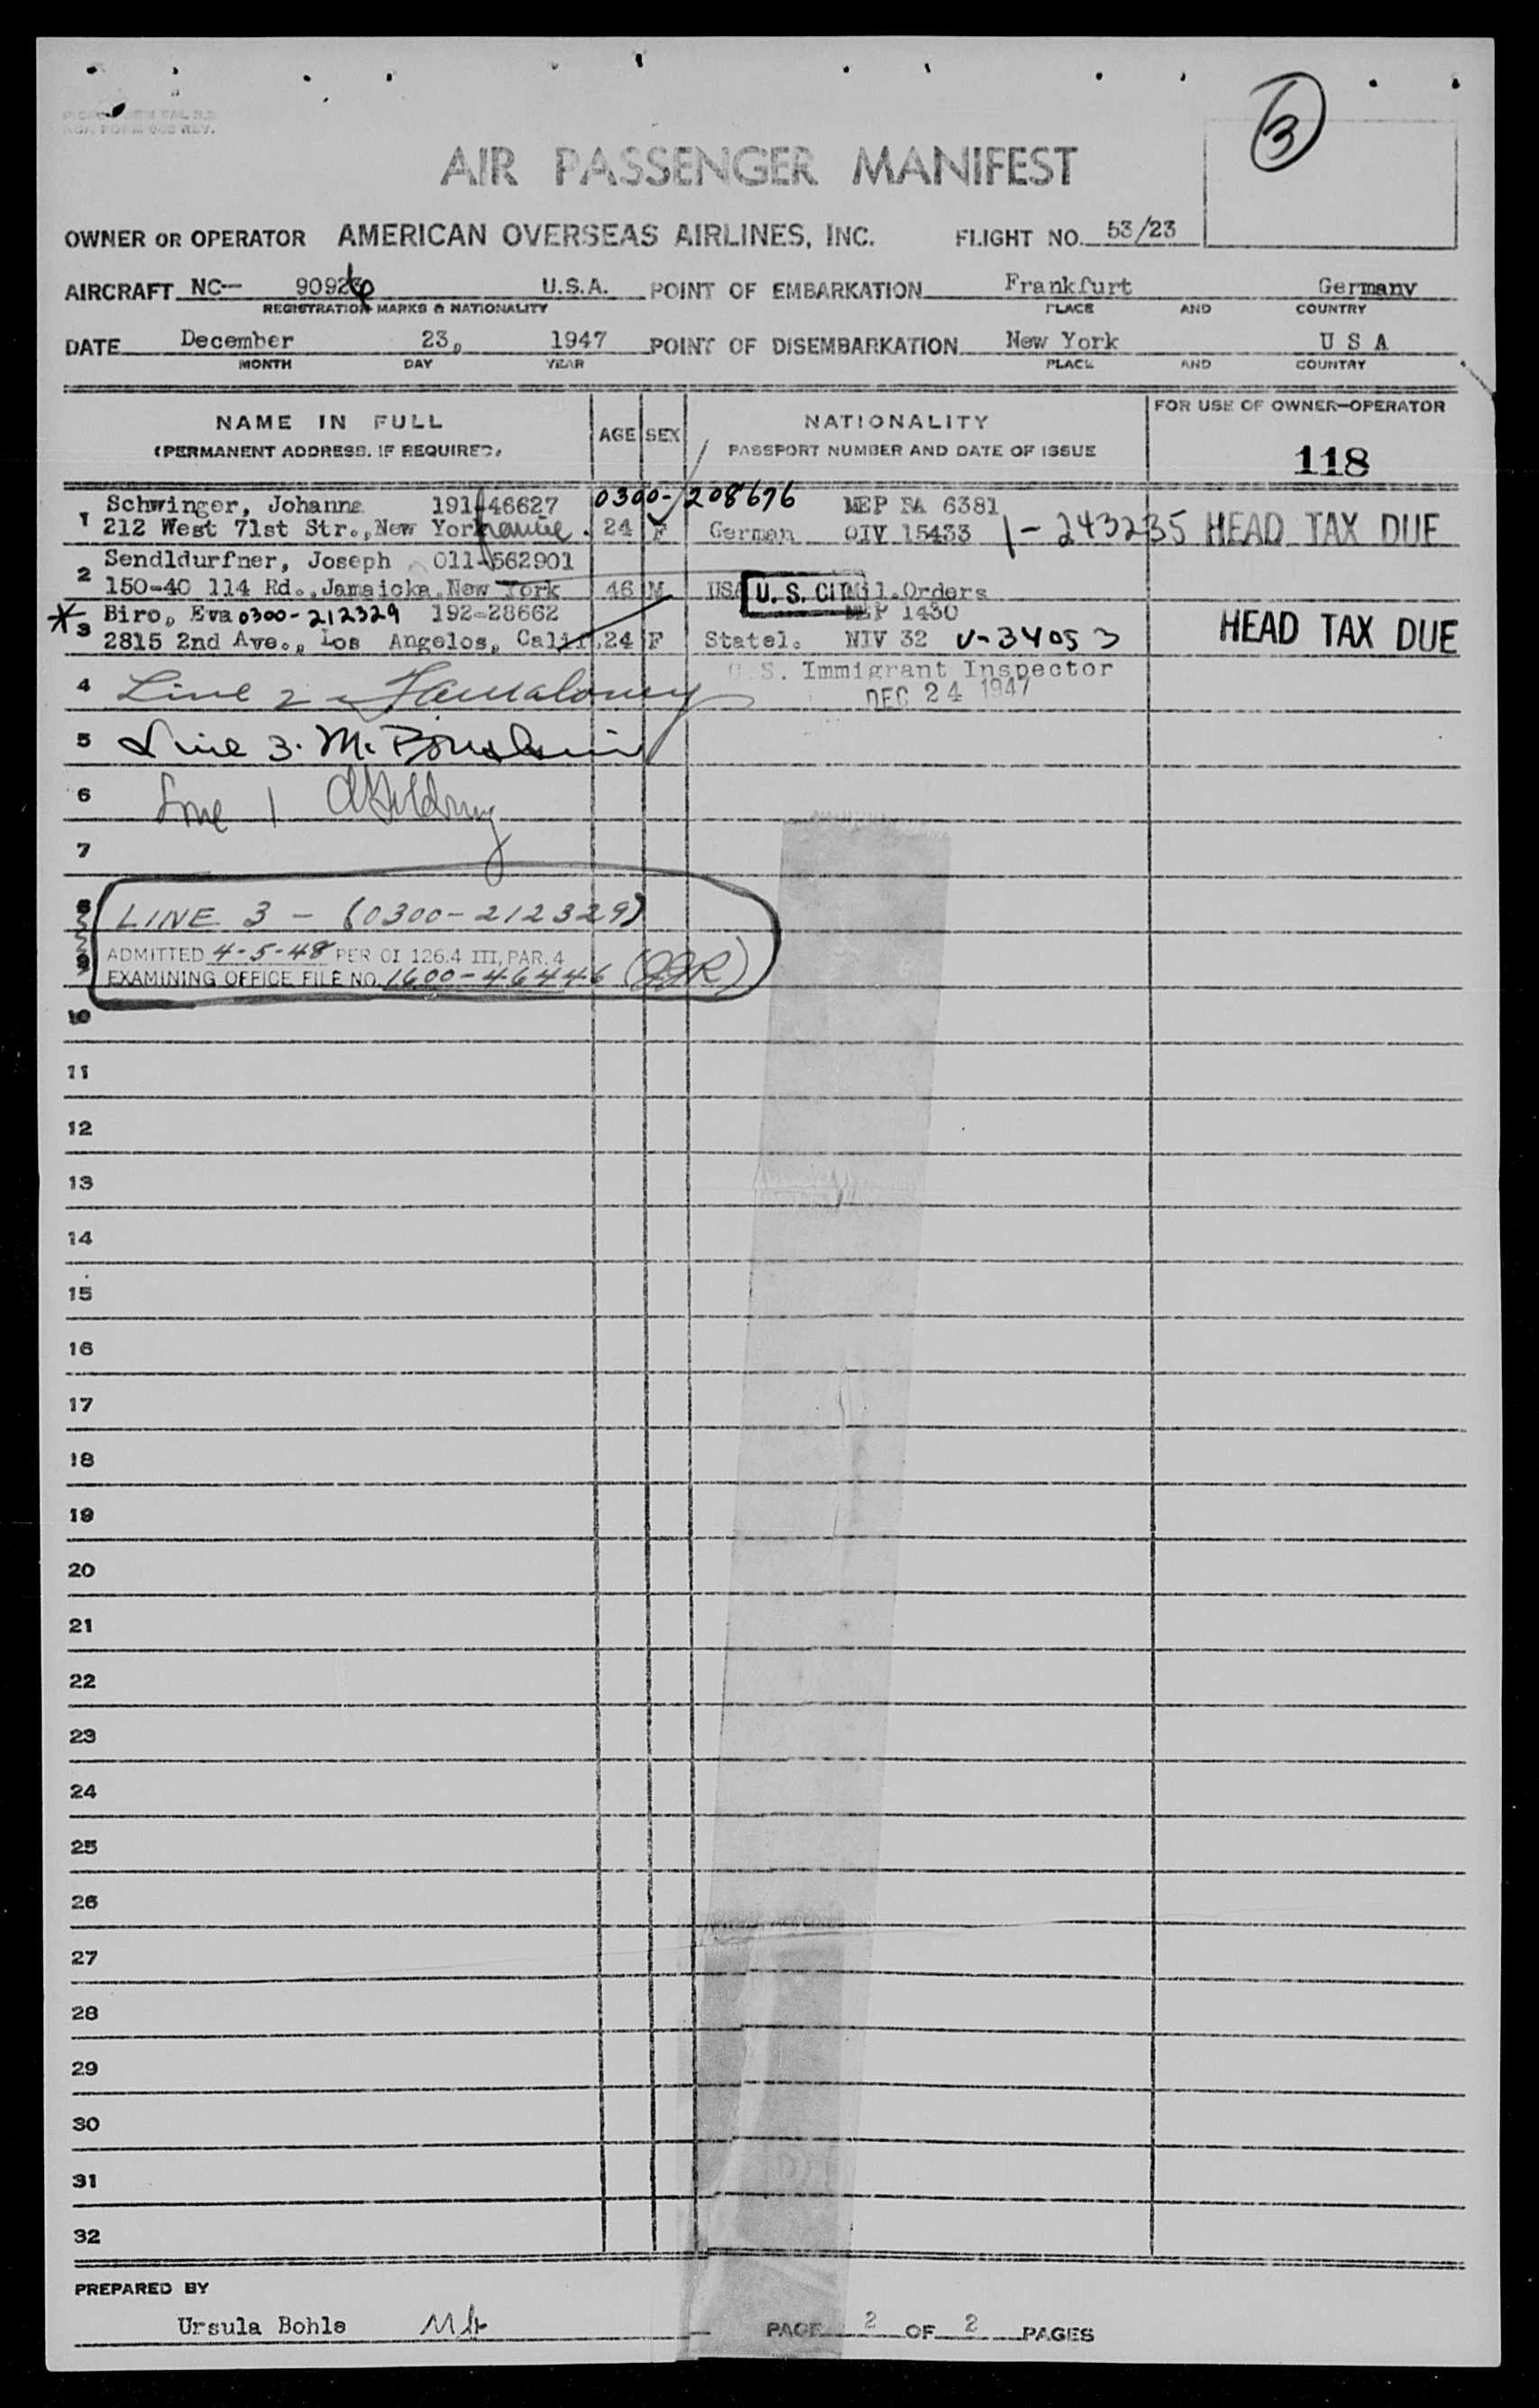 3
AOA FORM 606 REV.
AIR PASSENGER MANIFEST
OWNER OR OPERATOR AMERICAN OVERSEAS AIRLINES, INC. FLIGHT NO. 53/23
AIRCRAFT NC— 9092 U.S.A. POINT OF EMBARKATION Frankfurt Germany
REGISTRATION MARKS & NATIONALITY PLACE AND COUNTRY
DATE December 23, 1947 POINT OF DISEMBARKATION New York U S A
MONTH DAY YEAR PLACE AND COUNTRY
NAME IN FULL AGE SEX NATIONALITY FOR USE OF OWNER—OPERATOR
(PERMANENT ADDRESS, IF REQUIRED) PASSPORT NUMBER AND DATE OF ISSUE 118
1 Schwinger, Johanna 191-46627 0300-208676 MEP BA 6381
212 West 71st Str., New York 24 F German QIV 15433 1-243235 HEAD TAX DUE
2 Sendldurfner, Joseph 011-562901
150-40 114 Rd., Jamaicka, New York 46 M USA U. S. CIT Mil. Orders
* 3 Biro, Eva 0300-212329 192-28662 MEP 1430
2815 2nd Ave., Los Angelos, Calif. 24 F Statel. NIV 32 V-34053 HEAD TAX DUE
U. S. Immigrant Inspector
4 Line 2 DEC 24 1947
5 Line 3. M.
6 Line 1
7
8 LINE 3 - (0300-212329)
9 ADMITTED 4-5-48 PER OI 126.4 III, PAR. 4
EXAMINING OFFICE FILE NO. 1600-46446 (JJR)
10
11
12
13
14
15
16
17
18
19
20
21
22
23
24
25
26
27
28
29
30
31
32
PREPARED BY
Ursula Bohls PAGE 2 OF 2 PAGES